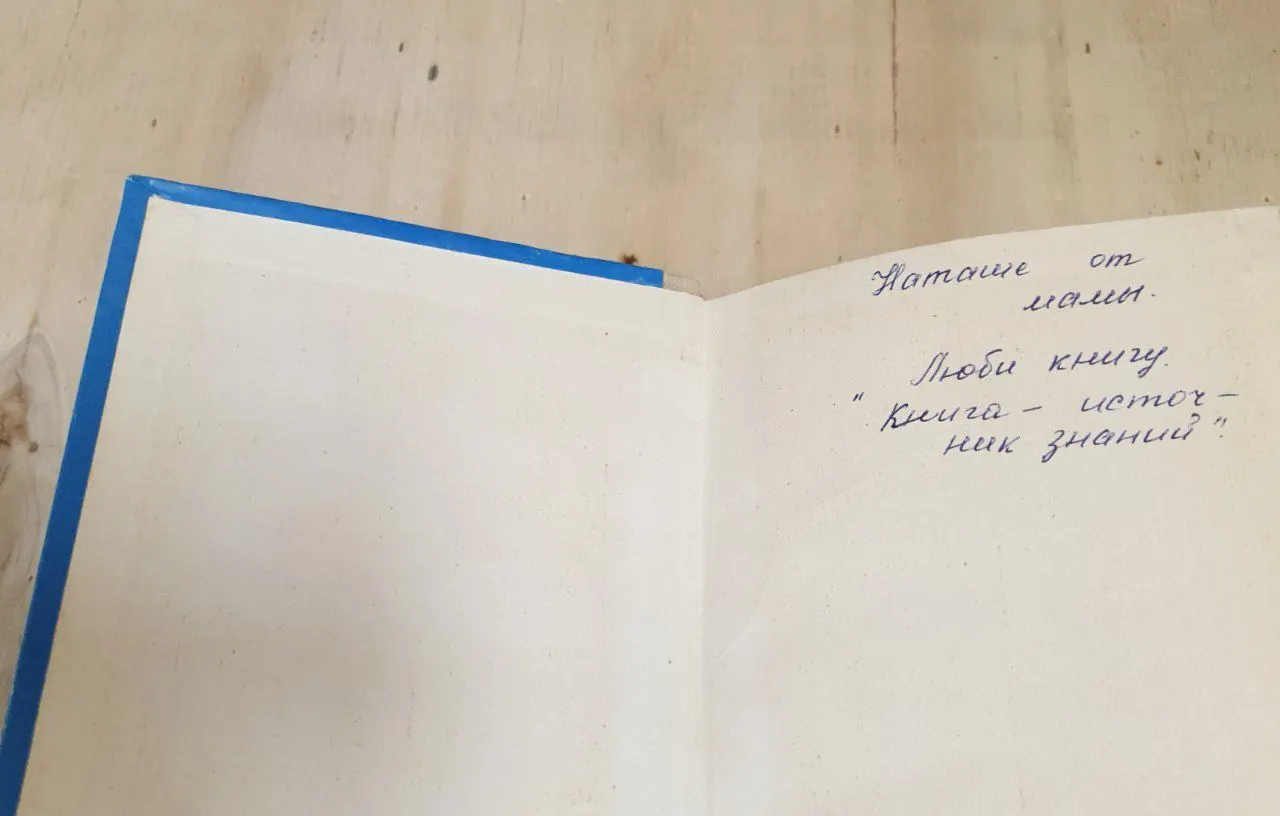 Наташе от
мамы.
Люби книгу.
"Книга - источ-
ник знаний".